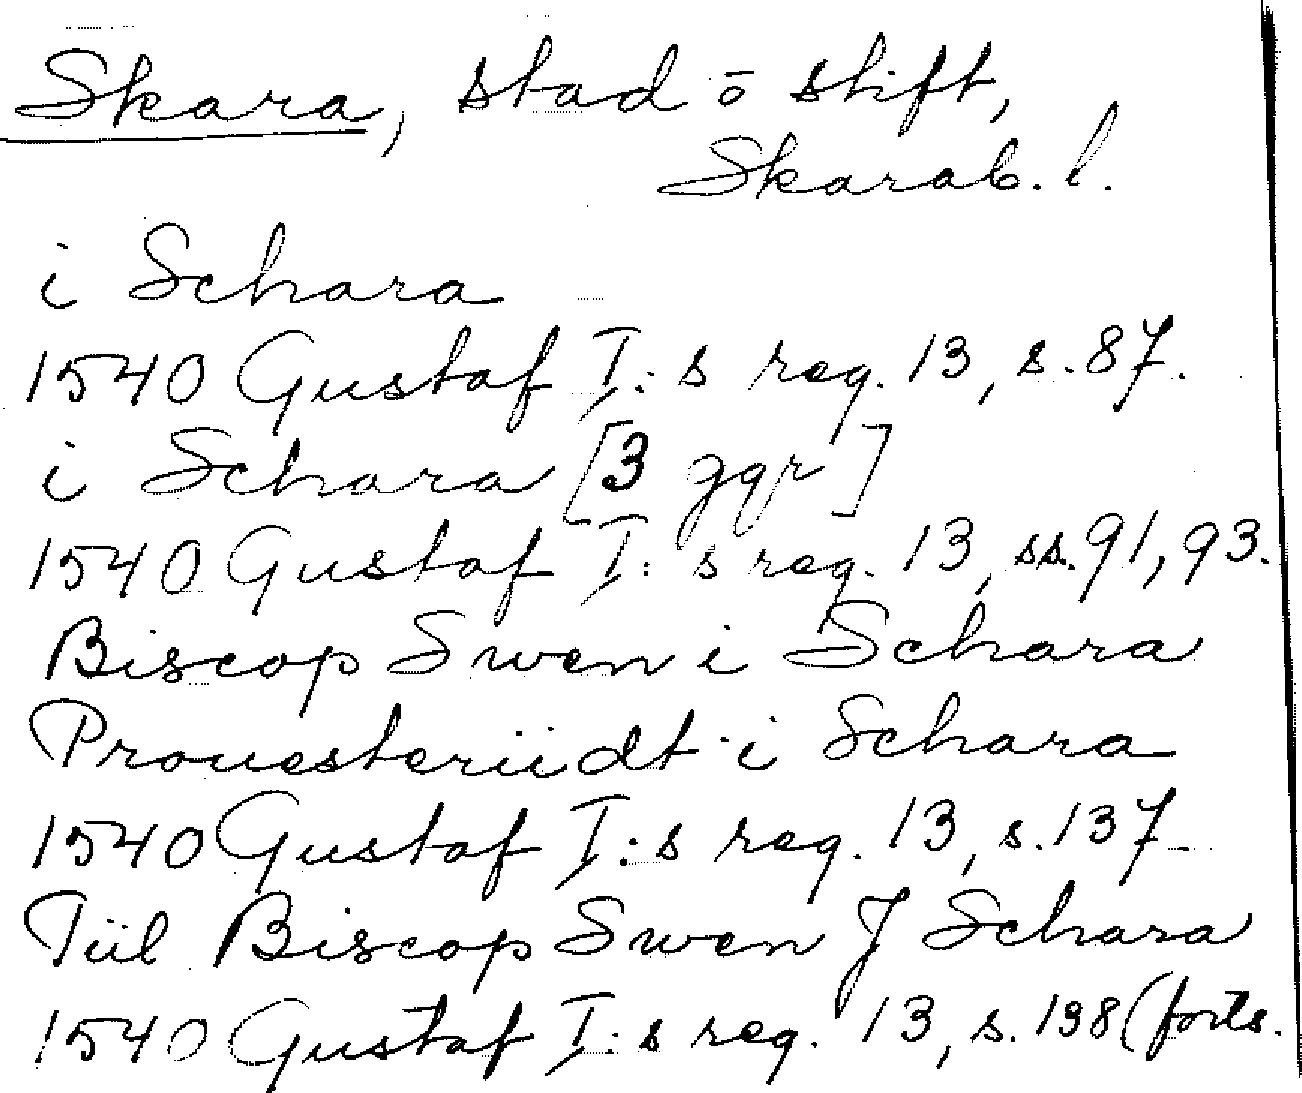 Skara, stad ō stift,
Skarab. l.
i Schara
1540 Gustaf I:s reg. 13, s. 87.
i Schara [3 ggr]
1540 Gustaf I:s reg. 13, ss. 91, 93.
Biscop Swen i Schara
Prouesteriidt i Schara
1540 Gustaf I:s reg. 13, s. 137
Tiil Biscop Swen J Schara
1540 Gustaf I:s reg. 13, s. 138 (forts.